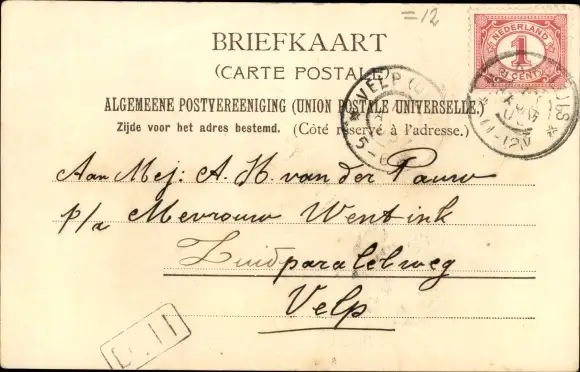 =12
BRIEFKAART
(CARTE POSTALE)
ALGEMEENE POSTVEREENIGING (UNION POSTALE UNIVERSELLE.)
Zijde voor het adres bestemd. (Côté réservé à l'adresse.)
NEDERLAND
1
CENT
VELP
11-12V
Aan Mej: A. H. van der Pauw
p/a Mevrouw Wentink
Zuidparalelweg
Velp